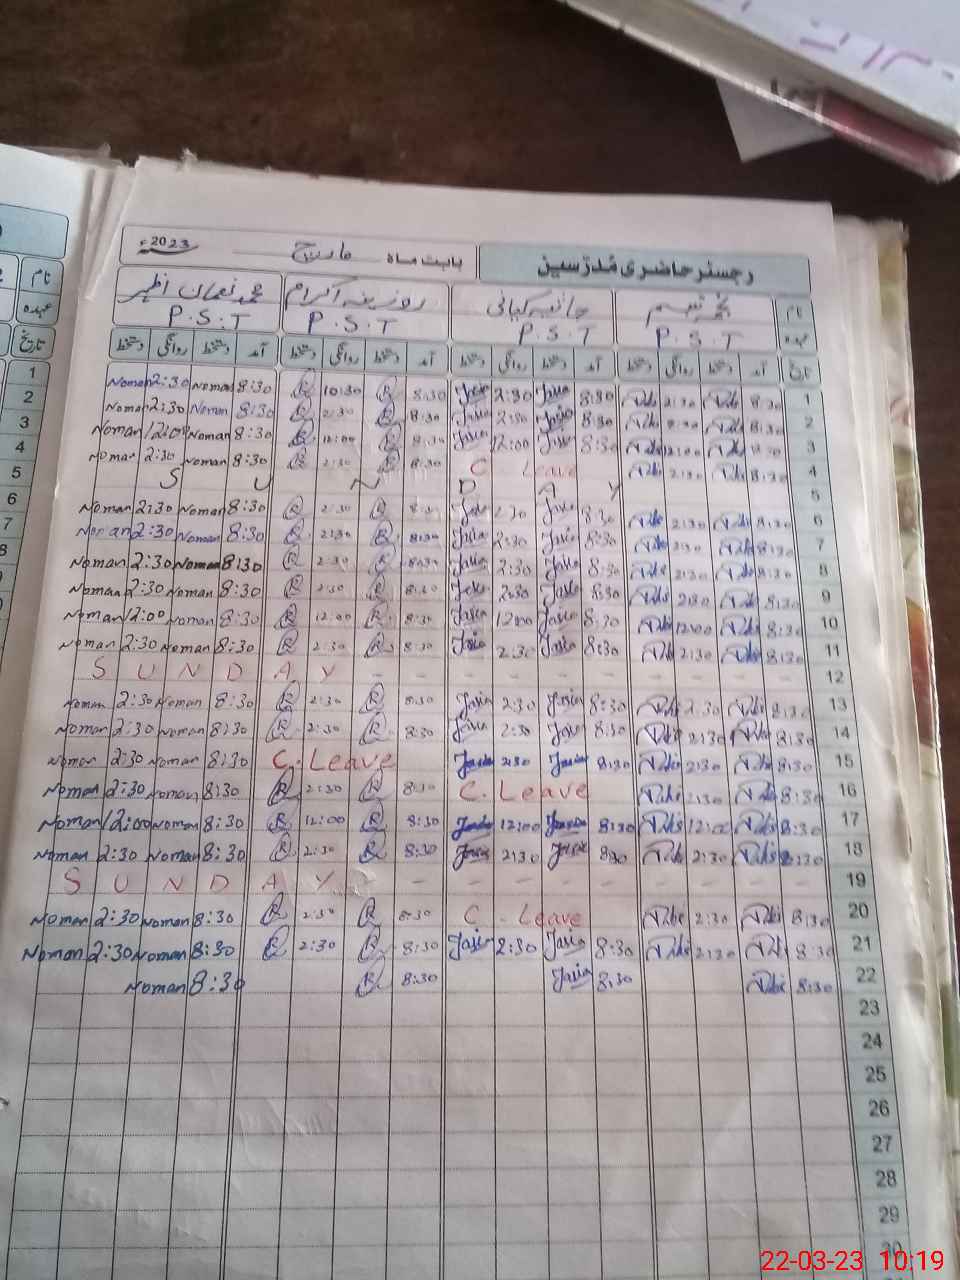 رجسٹر حاضری مُدرّسین بابت ماہ مارچ 2023ء
نام محمد نسیم جاثیہ کیانی روزینہ اکرام محمد نعمان اظہر
عہدہ P.S.T P.S.T P.S.T P.S.T
تاریخ آمد دستخط روانگی دستخط آمد دستخط روانگی دستخط آمد دستخط روانگی دستخط آمد دستخط روانگی دستخط
1 8:30 2:30 8:30 Jasia 2:30 Jasia 8:30 R 10:30 R 8:30 Noman 2:30 Noman
2 8:30 2:30 8:30 Jasia 2:30 Jasia 8:30 R 2:30 R 8:30 Noman 2:30 Noman
3 8:30 12:00 8:30 Jasia 12:00 Jasia 8:30 R 12:00 R 8:30 Noman 12:00 Noman
4 8:30 2:30 C Leave 8:30 R 2:30 R 8:30 Noman 2:30 Noman
5 S U N D A Y
6 8:30 2:30 8:30 Jasia 2:30 Jasia 8:30 R 2:30 R 8:30 Noman 2:30 Noman
7 8:30 2:30 8:30 Jasia 2:30 Jasia 8:30 R 2:30 R 8:30 Noman 2:30 Noman
8 8:30 2:30 8:30 Jasia 2:30 Jasia 8:30 R 2:30 R 8:30 Noman 2:30 Noman
9 8:30 2:30 8:30 Jasia 2:30 Jasia 8:30 R 2:30 R 8:30 Noman 2:30 Noman
10 8:30 12:00 8:30 Jasia 12:00 Jasia 8:30 R 12:00 R 8:30 Noman 12:00 Noman
11 8:30 2:30 8:30 Jasia 2:30 Jasia 8:30 R 2:30 R 8:30 Noman 2:30 Noman
12 S U N D A Y - - - - - - - - - -
13 8:30 2:30 8:30 Jasia 2:30 Jasia 8:30 R 2:30 R 8:30 Noman 2:30 Noman
14 8:30 2:30 8:30 Jasia 2:30 Jasia 8:30 R 2:30 R 8:30 Noman 2:30 Noman
15 8:30 2:30 8:30 Jasia 2:30 Jasia C. Leave 8:30 Noman 2:30 Noman
16 8:30 2:30 C. Leave 8:30 R 2:30 R 8:30 Noman 2:30 Noman
17 8:30 12:00 8:30 Jasia 12:00 Jasia 8:30 R 12:00 R 8:30 Noman 12:00 Noman
18 8:30 2:30 8:30 Jasia 2:30 Jasia 8:30 R 2:30 R 8:30 Noman 2:30 Noman
19 S U N D A Y - - - - - - - - - -
20 8:30 2:30 C. Leave 8:30 R 2:30 R 8:30 Noman 2:30 Noman
21 8:30 2:30 8:30 Jasia 2:30 Jasia 8:30 R 2:30 R 8:30 Noman 2:30 Noman
22 8:30 8:30 Jasia 8:30 R 8:30 Noman
23
24
25
26
27
28
29
30
نام
عہدہ
تاریخ
1
2
3
4
5
6
7
8
22-03-23 10:19